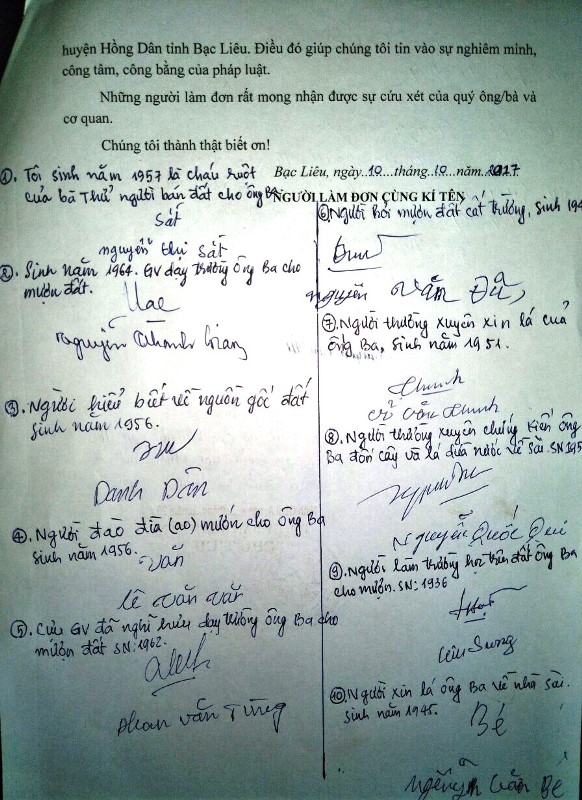 huyện Hồng Dân tỉnh Bạc Liêu. Điều đó giúp chúng tôi tin vào sự nghiêm minh,
công tâm, công bằng của pháp luật.
Những người làm đơn rất mong nhận được sự cứu xét của quý ông/bà và
cơ quan.
Chúng tôi thành thật biết ơn!
Bạc Liêu, ngày..10...tháng..10...năm..2017
NGƯỜI LÀM ĐƠN CÙNG KÍ TÊN
①. Tôi sinh năm 1957 là cháu ruột
của bà Thử người bán đất cho ông Ba
Sát
nguyễn thị sát
②. Sinh năm 1964. GV dạy trường ông Ba cho
mượn đất.
nguyễn Thanh
③. Người hiểu biết về nguồn gốc đất
sinh năm 1956.
Danh Dân
④. Người đào đìa (ao) mướn cho ông Ba
sinh năm 1956.
văn
lê văn văn
⑤. Cựu GV đã nghỉ hưu dạy trường ông Ba cho
mượn đất SN: 1962.
phan văn Tùng
⑥. Người hỏi mượn đất cất trường, sinh 194
nguyễn văn
⑦. Người thường xuyên xin lá của
ông Ba, sinh năm 1951.
văn
⑧. Người thường xuyên chứng kiến ông
Ba đốn cây và lá dừa nước về sài. SN 195
Nguyễn Quốc
⑨. Người làm trường học trên đất ông Ba
cho mượn. SN: 1936
⑩. Người xin lá ông Ba về nhà sài.
sinh năm 1945.
Bé
nguyễn văn Bé